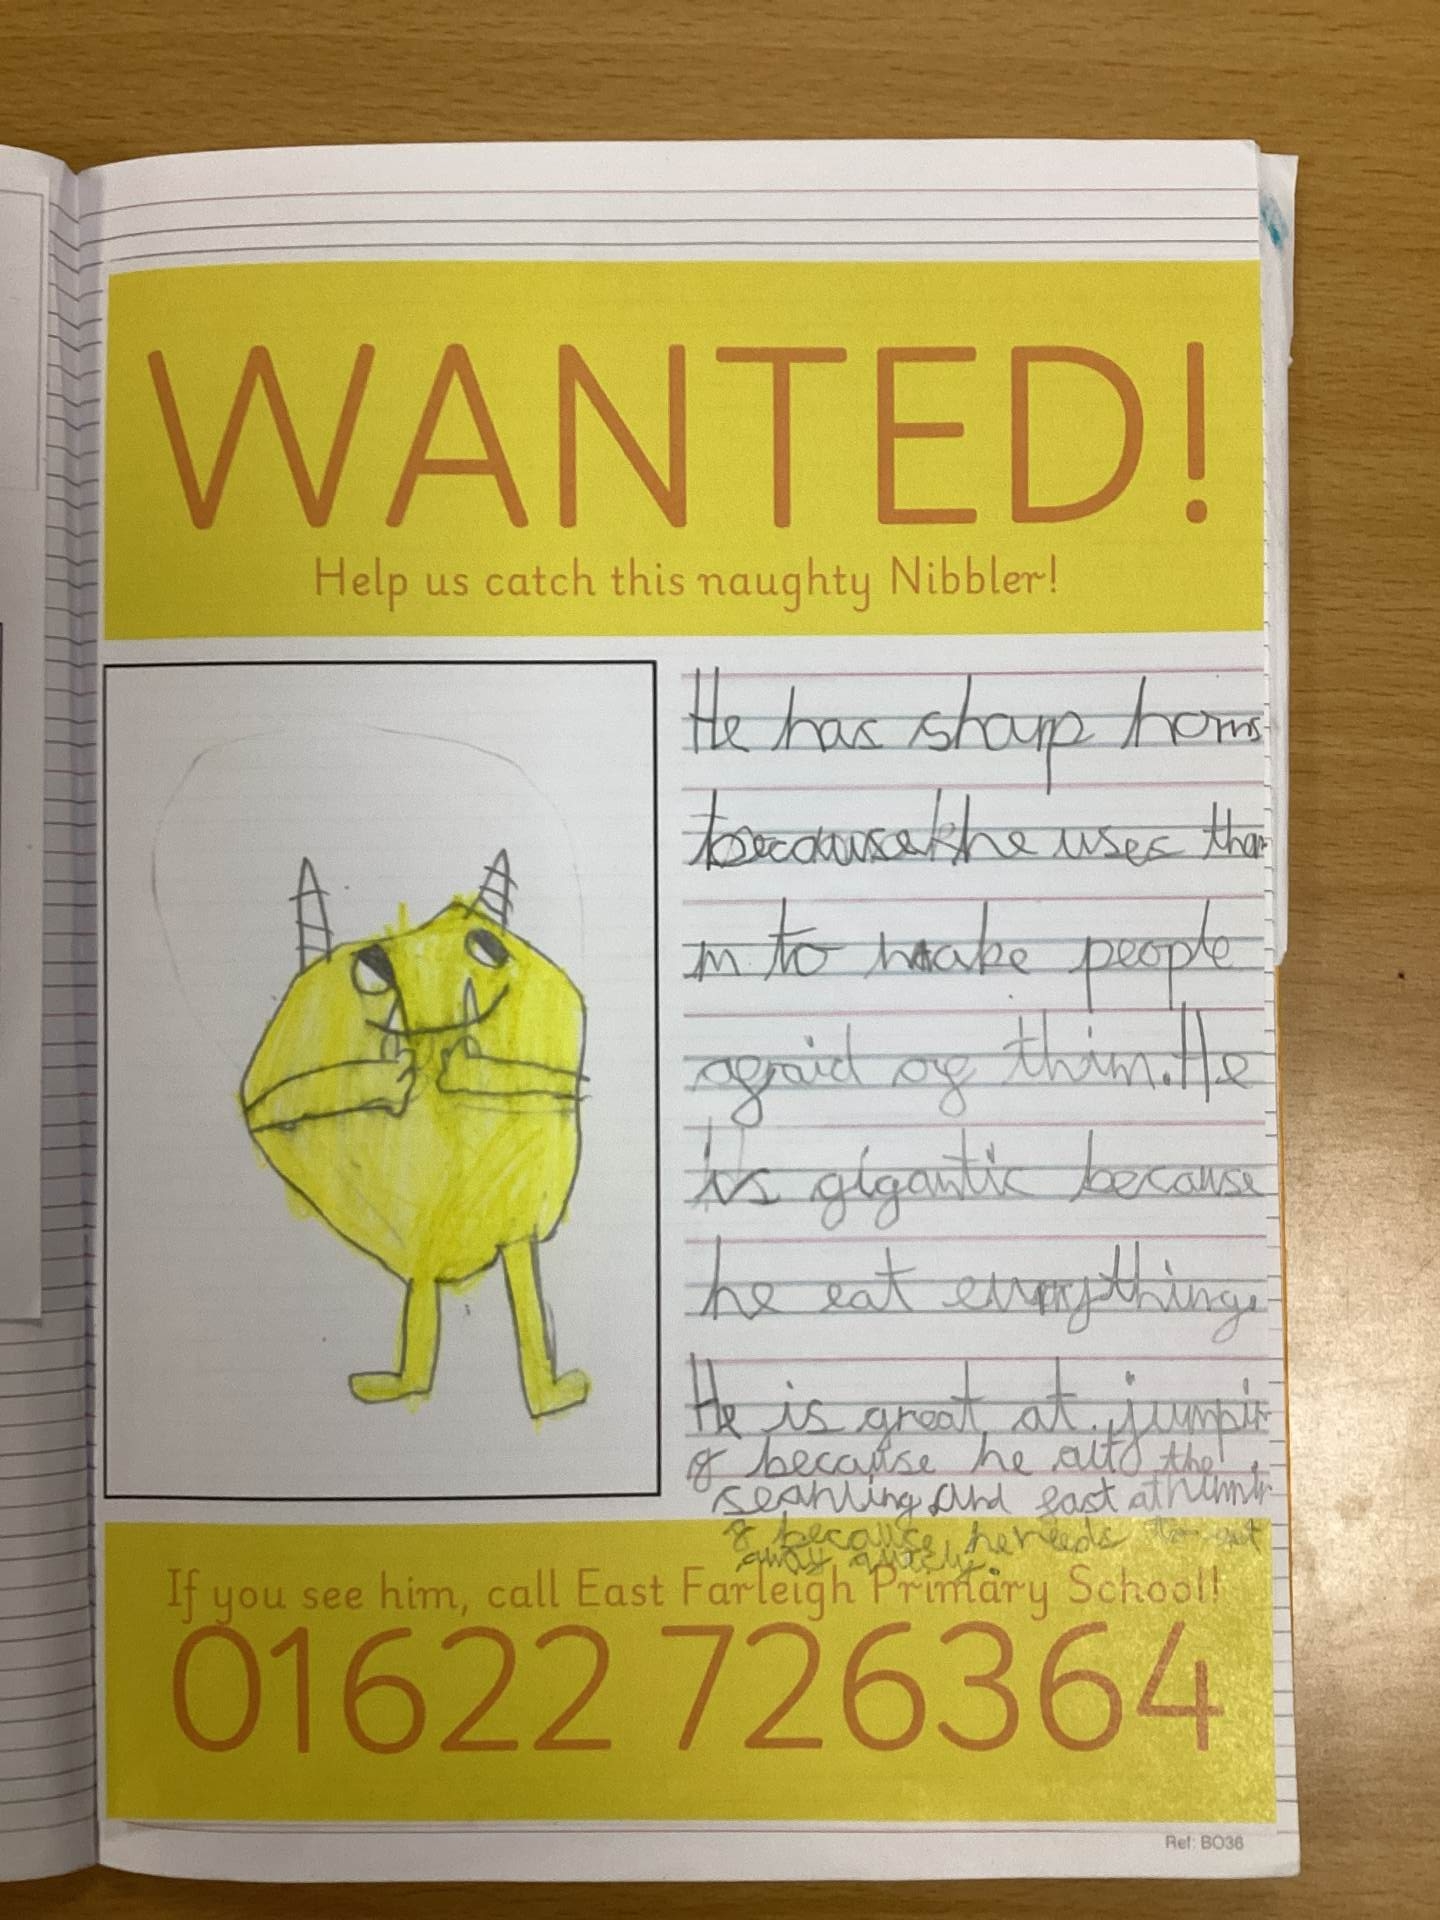 WANTED!
Help us catch this naughty Nibbler!
He has sharp horns
because he uses the
m to make people
afraid of him. He
is gigantic because
he eat everything.
He is great at jumpin
g because he
and fast at
g because he needs to get
away
If you see him, call East Farleigh Primary School!
01622 726364
Ref: BO36